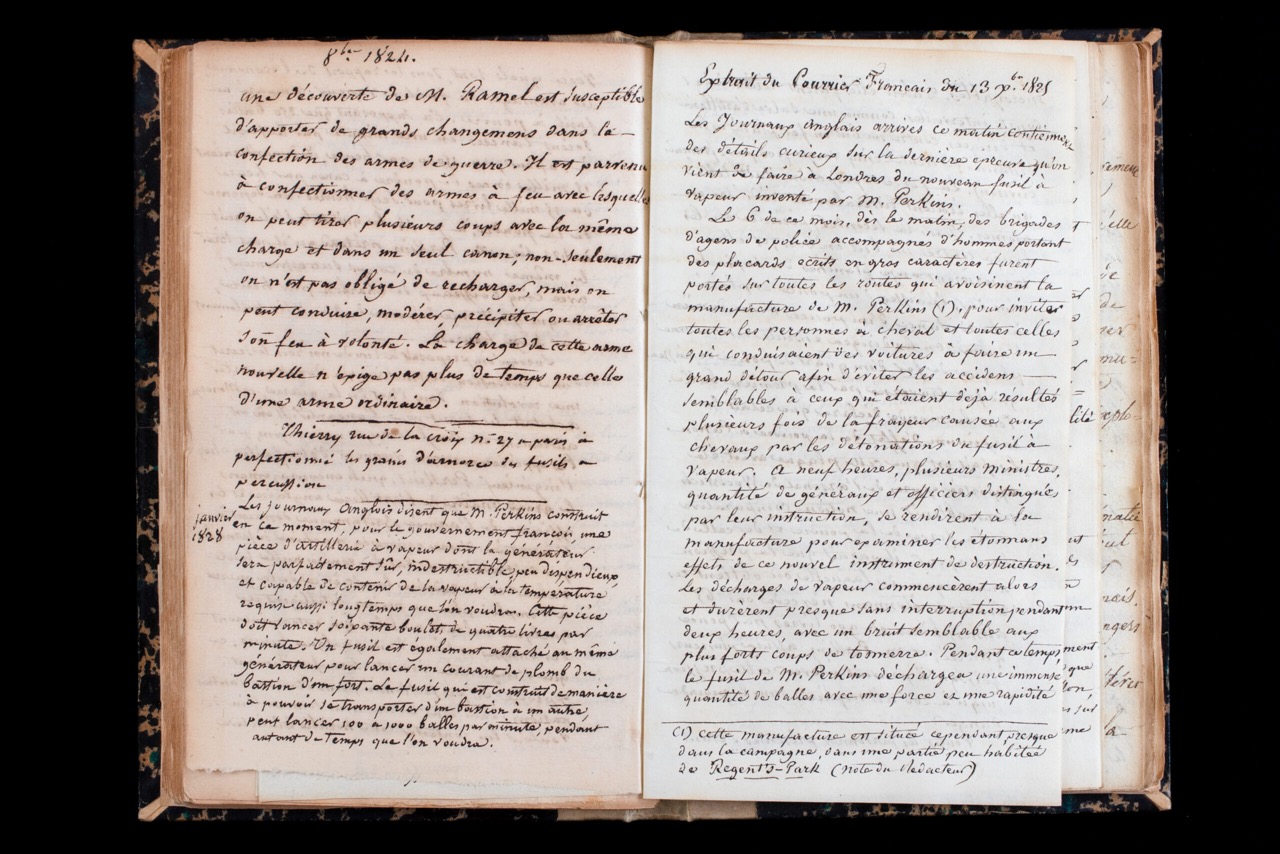 8bre 1824.
une découverte de M. Ramel est susceptible
d'apporter de grands changemens dans la
confection des armes de guerre. Il est parvenu
à confectionner des armes à feu avec lesquelles
on peut tirer plusieurs coups avec la même
charge et dans un seul canon; non-seulement
on n'est pas obligé de recharger, mais on
peut conduire, modérer, précipiter ou arrêter
son feu à volonté. La charge de cette arme
nouvelle n'exige pas plus de temps que celle
d'une arme ordinaire.
Thierry rue de la croix n.° 27 a paris à
perfectionné les grains d'amorce des fusils a
percussion
janvier
1828
Les journaux Anglois disent que M. Perkins construit
en ce moment, pour le gouvernement françois, une
pièce d'artillerie à vapeur dont la générateur
sera parfaitement sûr, indestructible, peu dispendieux,
et capable de contenir de la vapeur à la temperature
requise aussi longtemps que l'on voudra. Cette pièce
doit lancer soixante boulets de quatre livres par
minute. Un fusil est egalement attaché au même
générateur pour lancer un courant de plomb du
bastion d'un fort. Le fusil qui est construit de manière
à pouvoir se transporter d'un bastion à un autre,
peut lancer 100 à 1000 balles par minute, pendant
autant de temps que l'on voudra.
Extrait du Courrier Francais du 13 xbre 1825
Les Journaux anglais arrivés ce matin contiennent
des détails curieux sur la dernière epreuve qu'on
vient de faire à Londres du nouveau fusil à
vapeur inventé par M. Perkins.
Le 6 de ce mois, dès le matin, des brigades
d'agens de police accompagnés d'hommes portant
des placards ecrits en gros caractères furent
portés sur toutes les routes qui avoisinent la
manufacture de M. Perkins (1), pour inviter
toutes les personnes à cheval et toutes celles
qui conduisaient des voitures à faire un
grand détour afin d'éviter les accidens
semblables à ceux qui étaient déjà résultés
plusieurs fois de la frayeur causée aux
chevaux par les détonations du fusil à
vapeur. A neuf heures, plusieurs ministres,
quantité de généraux et officiers distingués
par leur instruction, se rendirent à la
manufacture pour examiner les etonnans
effets de ce nouvel instrument de destruction.
Les décharges de vapeur commencèrent alors
et durèrent presque sans interruption pendant
deux heures, avec un bruit semblable aux
plus forts coups de tonnerre. Pendant ce temps
le fusil de M. Perkins déchargea une immense
quantité de balles avec une force et une rapidité
(1) Cette manufacture est située cependant presque
dans la campagne, dans une partie peu habitée
de Regent's-Park (note du Redacteur)